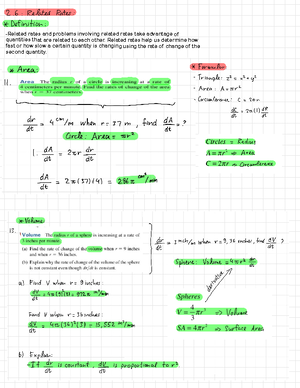 2.6 Related Rates
* Definition:
-Related rates and problems involving related rates take advantage of
quantities that are related to each other. Related rates help us determine how
fast or how slow a certain quantity is changing using the rate of change of the
second quantity.
* Area:
11. Area The radius r of a circle is increasing at a rate of
4 centimeters per minute. Find the rates of change of the area
when r = 37 centimeters.
dr/dt = 4 cm/m when r = 37 m, find dA/dt = ?
Circle: Area = πr²
1. dA/dt = 2πr dr/dt
dA/dt = 2π(37)(4) = 296π cm²/min
* Formulas
- Triangle: z² = x² + y²
- Area: A = πr²
- Circumference: C = 2πr
dC/dt = 2π(1) dr/dt
Circles = Radius
A = πr² ⇒ Area
C = 2πr ⇒ Circumference
* Volume
17. Volume The radius r of a sphere is increasing at a rate of
3 inches per minute.
(a) Find the rate of change of the volume when r = 9 inches
and when r = 36 inches.
(b) Explain why the rate of change of the volume of the sphere
is not constant even though dr/dt is constant.
dr/dt = 3 inch/m when r = 9, 36 inches, find dV/dt ?
Sphere: Volume = 4πr² dr/dt
derivative
Spheres
V = 4/3 πr³ ⇒ Volume
SA = 4πr² ⇒ Surface Area
a) Find V when r = 9 inches:
dV/dt = 4π(9)²(3) = 972π in³/min
Find V when r = 36 inches:
dV/dt = 4π(36)²(3) = 15,552 in³/min
b) Explain:
- If dr/dt is constant, dV/dt is proportional to r²